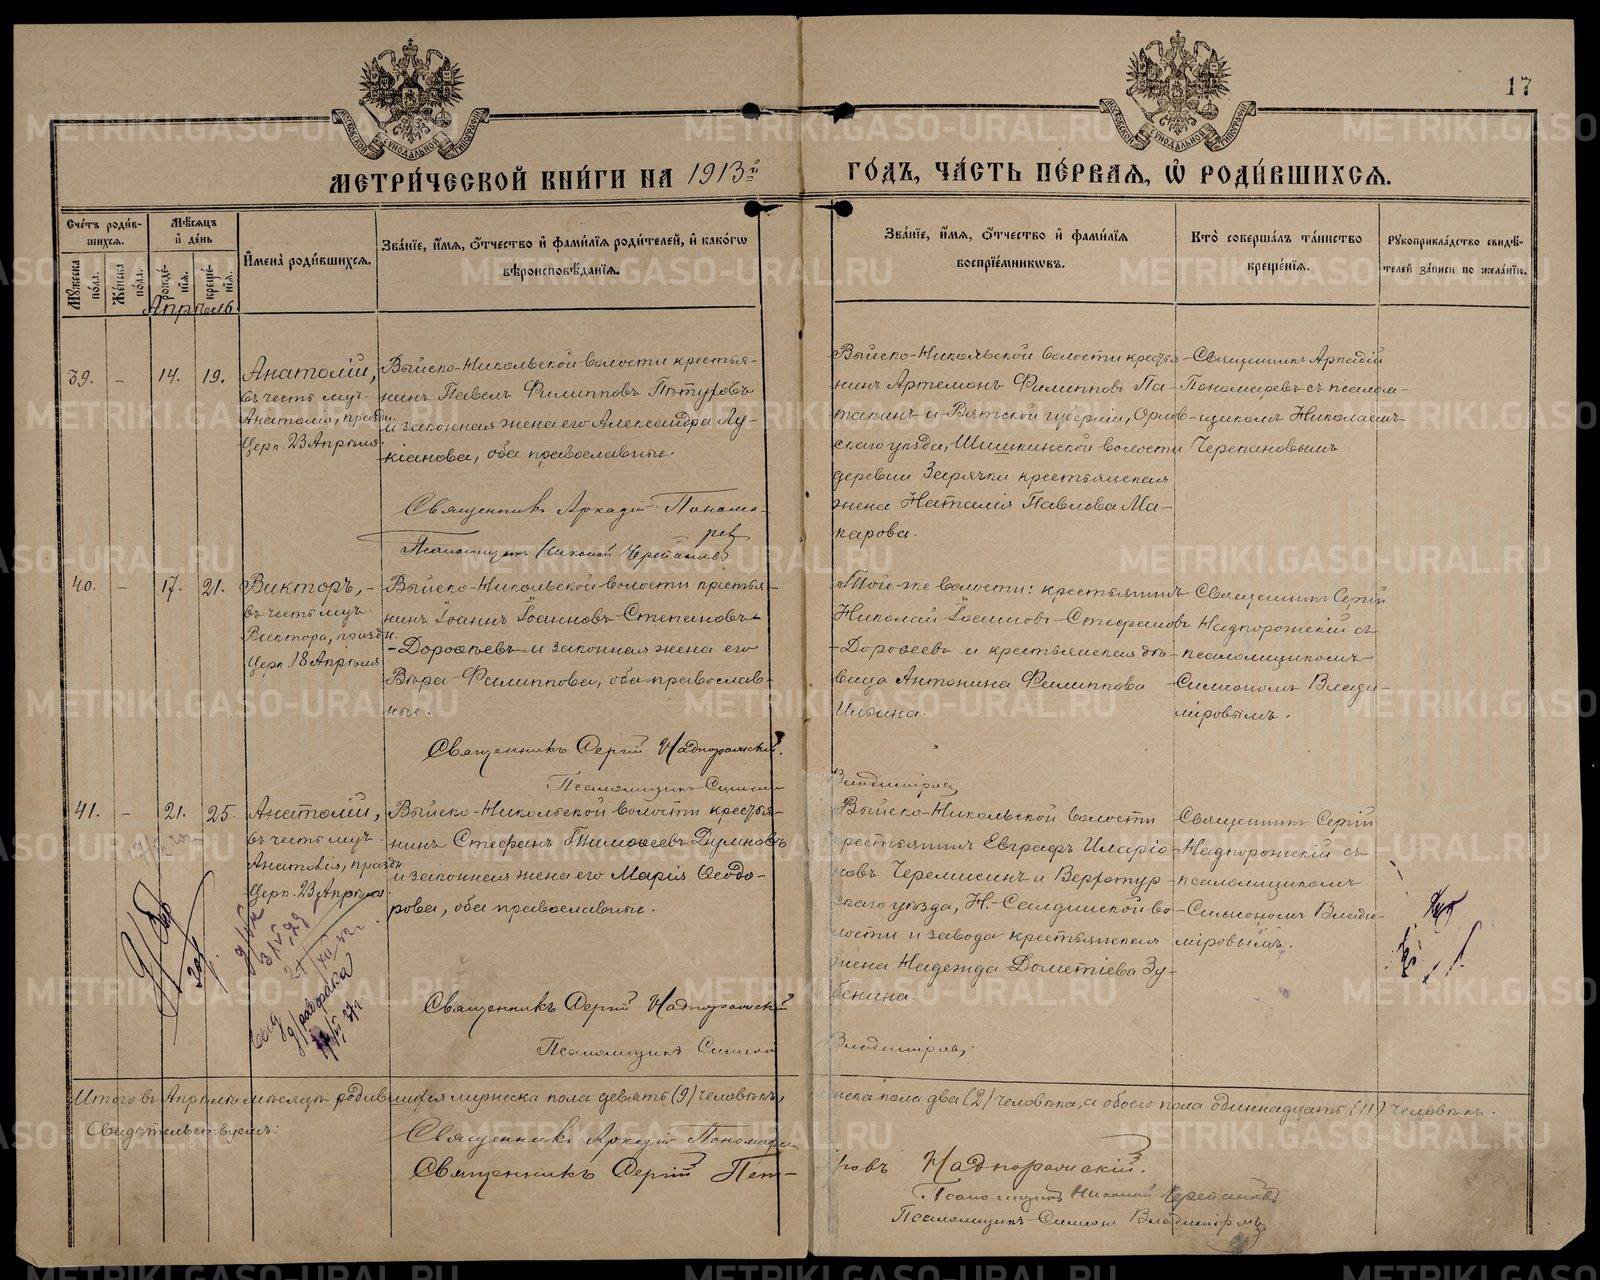 17
МЕТРИ́ЧЕСКОЙ КНИ́ГИ НА 1913й ГО́ДЪ, ЧА́СТЬ ПЕ́РВАЯ, Ѡ҆ РОДИ́ВШИХСЯ.
Сче́тъ роди́в-
шихся.
Мꙋ́жеска по́ла.
Же́нска по́ла.
Мѣ́сяцъ и҆ де́нь
рожде́-нїя.
креще́-нїя.
И҆мена̀ роди́вшихся.
Зва́нїе, и҆́мя, ѻ҆́тчество и҆ фами́лїя роди́телей, и҆ како́гѡ
вѣроисповѣ́данїя.
Зва́нїе, и҆́мя, ѻ҆́тчество и҆ фами́лїя
воспрїе́мникѡвъ.
Кто̀ соверша́лъ та́инство
креще́нїя.
Рꙋкоприкла́дство свидѣ́-
телей за́писи по жела́нїю.
Апрѣль
39. - 14. 19.
Анатолій,
въ честь муч.
Анатолія, праздн.
Церк. 23 Апрѣля
Выйско-Никольской волости крестья-
нинъ Павелъ Филипповъ
и законная жена его Александра Лу-
кіанова, оба православные.
Священникъ Аркадій Понома-
рев
Псаломщикъ Николай Черепановъ
Выйско-Никольской волости кресть-
нинъ Артемонъ Филипповъ Па-
такинъ и Вятской губерніи, Орлов-
скаго уѣзда, Шишкинской волости
деревни крестьянская
жена Наталія Павлова Ма-
карова.
Священникъ Аркадій
Пономаревъ съ псалом-
щикомъ Николаемъ
Черепановымъ.
40. - 17. 21.
Викторъ, -
въ честь муч.
Виктора, праздн.
Церк. 18 Апрѣля
Выйско-Никольской волости крестья-
нинъ Іоаннъ Іоанновъ Степановъ
-Дороѳеевъ и законная жена его
Вѣра Филиппова, оба православ-
ные.
Священникъ Сергій Надпорожскій.
Псаломщикъ Симеон
Владиміровъ
Той-же волости: крестьянинъ
Николай Іоанновъ Стефановъ
-Дороѳеевъ и крестьянская дѣ-
вица Антонина Филиппова
Ильина.
Священникъ Сергій
Надпорожскій съ
псаломщикомъ
Симеономъ Влади-
міровымъ.
41. - 21. 25.
Анатолій,
въ честь муч.
Анатолія, праздн.
Церк. 23 Апрѣля
Выйско-Никольской волости крестья-
нинъ Стефанъ Тимоѳеевъ Думновъ
и законная жена его Марія Ѳеодо-
рова, оба православные.
Священникъ Сергій Надпорожскій
Псаломщикъ Симеон
Владиміровъ
Выйско-Никольской волости
крестьянинъ Евграфъ Иларіо-
новъ Черемисинъ и Верхотур-
скаго уѣзда, Н.-Салдинской во-
лости и завода крестьянская
жена Надежда Дометіева Зу-
бенина.
Священникъ Сергій
Надпорожскій съ
псаломщикомъ
Симеономъ Влади-
міровымъ.
Итого въ Апрѣлѣ мѣсяцѣ родившихся мужеска пола девять (9) человѣкъ, женска пола два (2) человѣка, а обоего пола одиннадцать (11) человѣкъ.
Свидѣтельствуемъ:
Священникъ Аркадій Пономарев
Священникъ Сергій Пет-ровъ Надпорожскій.
Псаломщикъ Николай Черепановъ
Псаломщикъ Симеон Владиміровъ